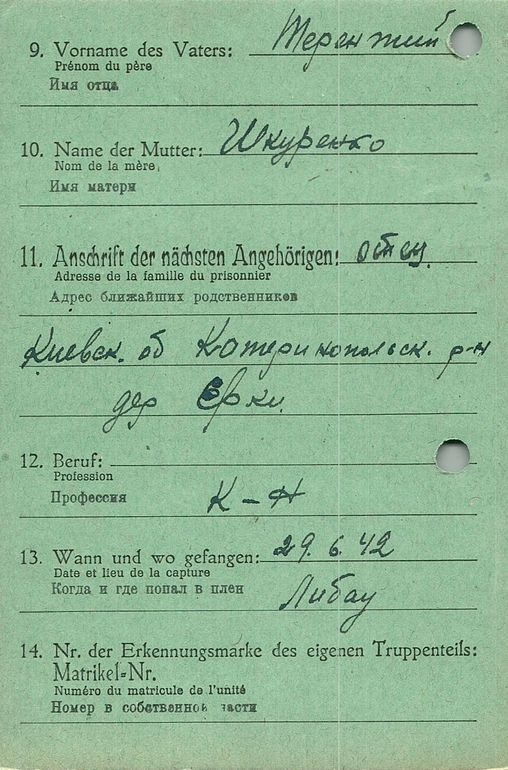 9. Vorname des Vaters: Терентий
Prénom du père
Имя отца
10. Name der Mutter: Шкуренко
Nom de la mère
Имя матери
11. Anschrift der nächsten Angehörigen: отец
Adresse de la famille du prisonnier
Адрес ближайших родственников
Киевск. об Катеринопольск. р-н
дер Ерки
12. Beruf:
Profession
Профессия К-н
13. Wann und wo gefangen: 29.6.42
Date et lieu de la capture
Когда и где попал в плен Либау
14. Nr. der Erkennungsmarke des eigenen Truppenteils:
Matrikel-Nr.
Numéro du matricule de l'unité
Номер в собственной части